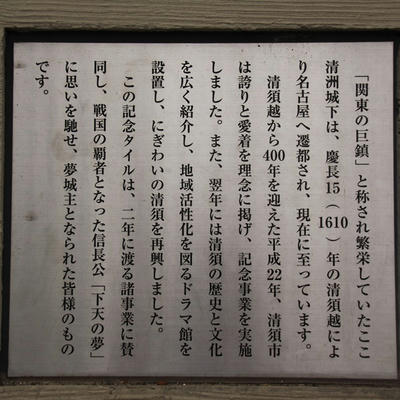 「関東の巨鎮」と称され繁栄していたここ
清洲城下は、慶長15(1610)年の清須越によ
り名古屋へ遷都され、現在に至っています。
清須越から400年を迎えた平成22年、清須市
は誇りと愛着を理念に掲げ、記念事業を実施
しました。また、翌年には清須の歴史と文化
を広く紹介し、地域活性化を図るドラマ館を
設置し、にぎわいの清須を再興しました。
この記念タイルは、二年に渡る諸事業に賛
同し、戦国の覇者となった信長公「下天の夢」
に思いを馳せ、夢城主となられた皆様のもの
です。